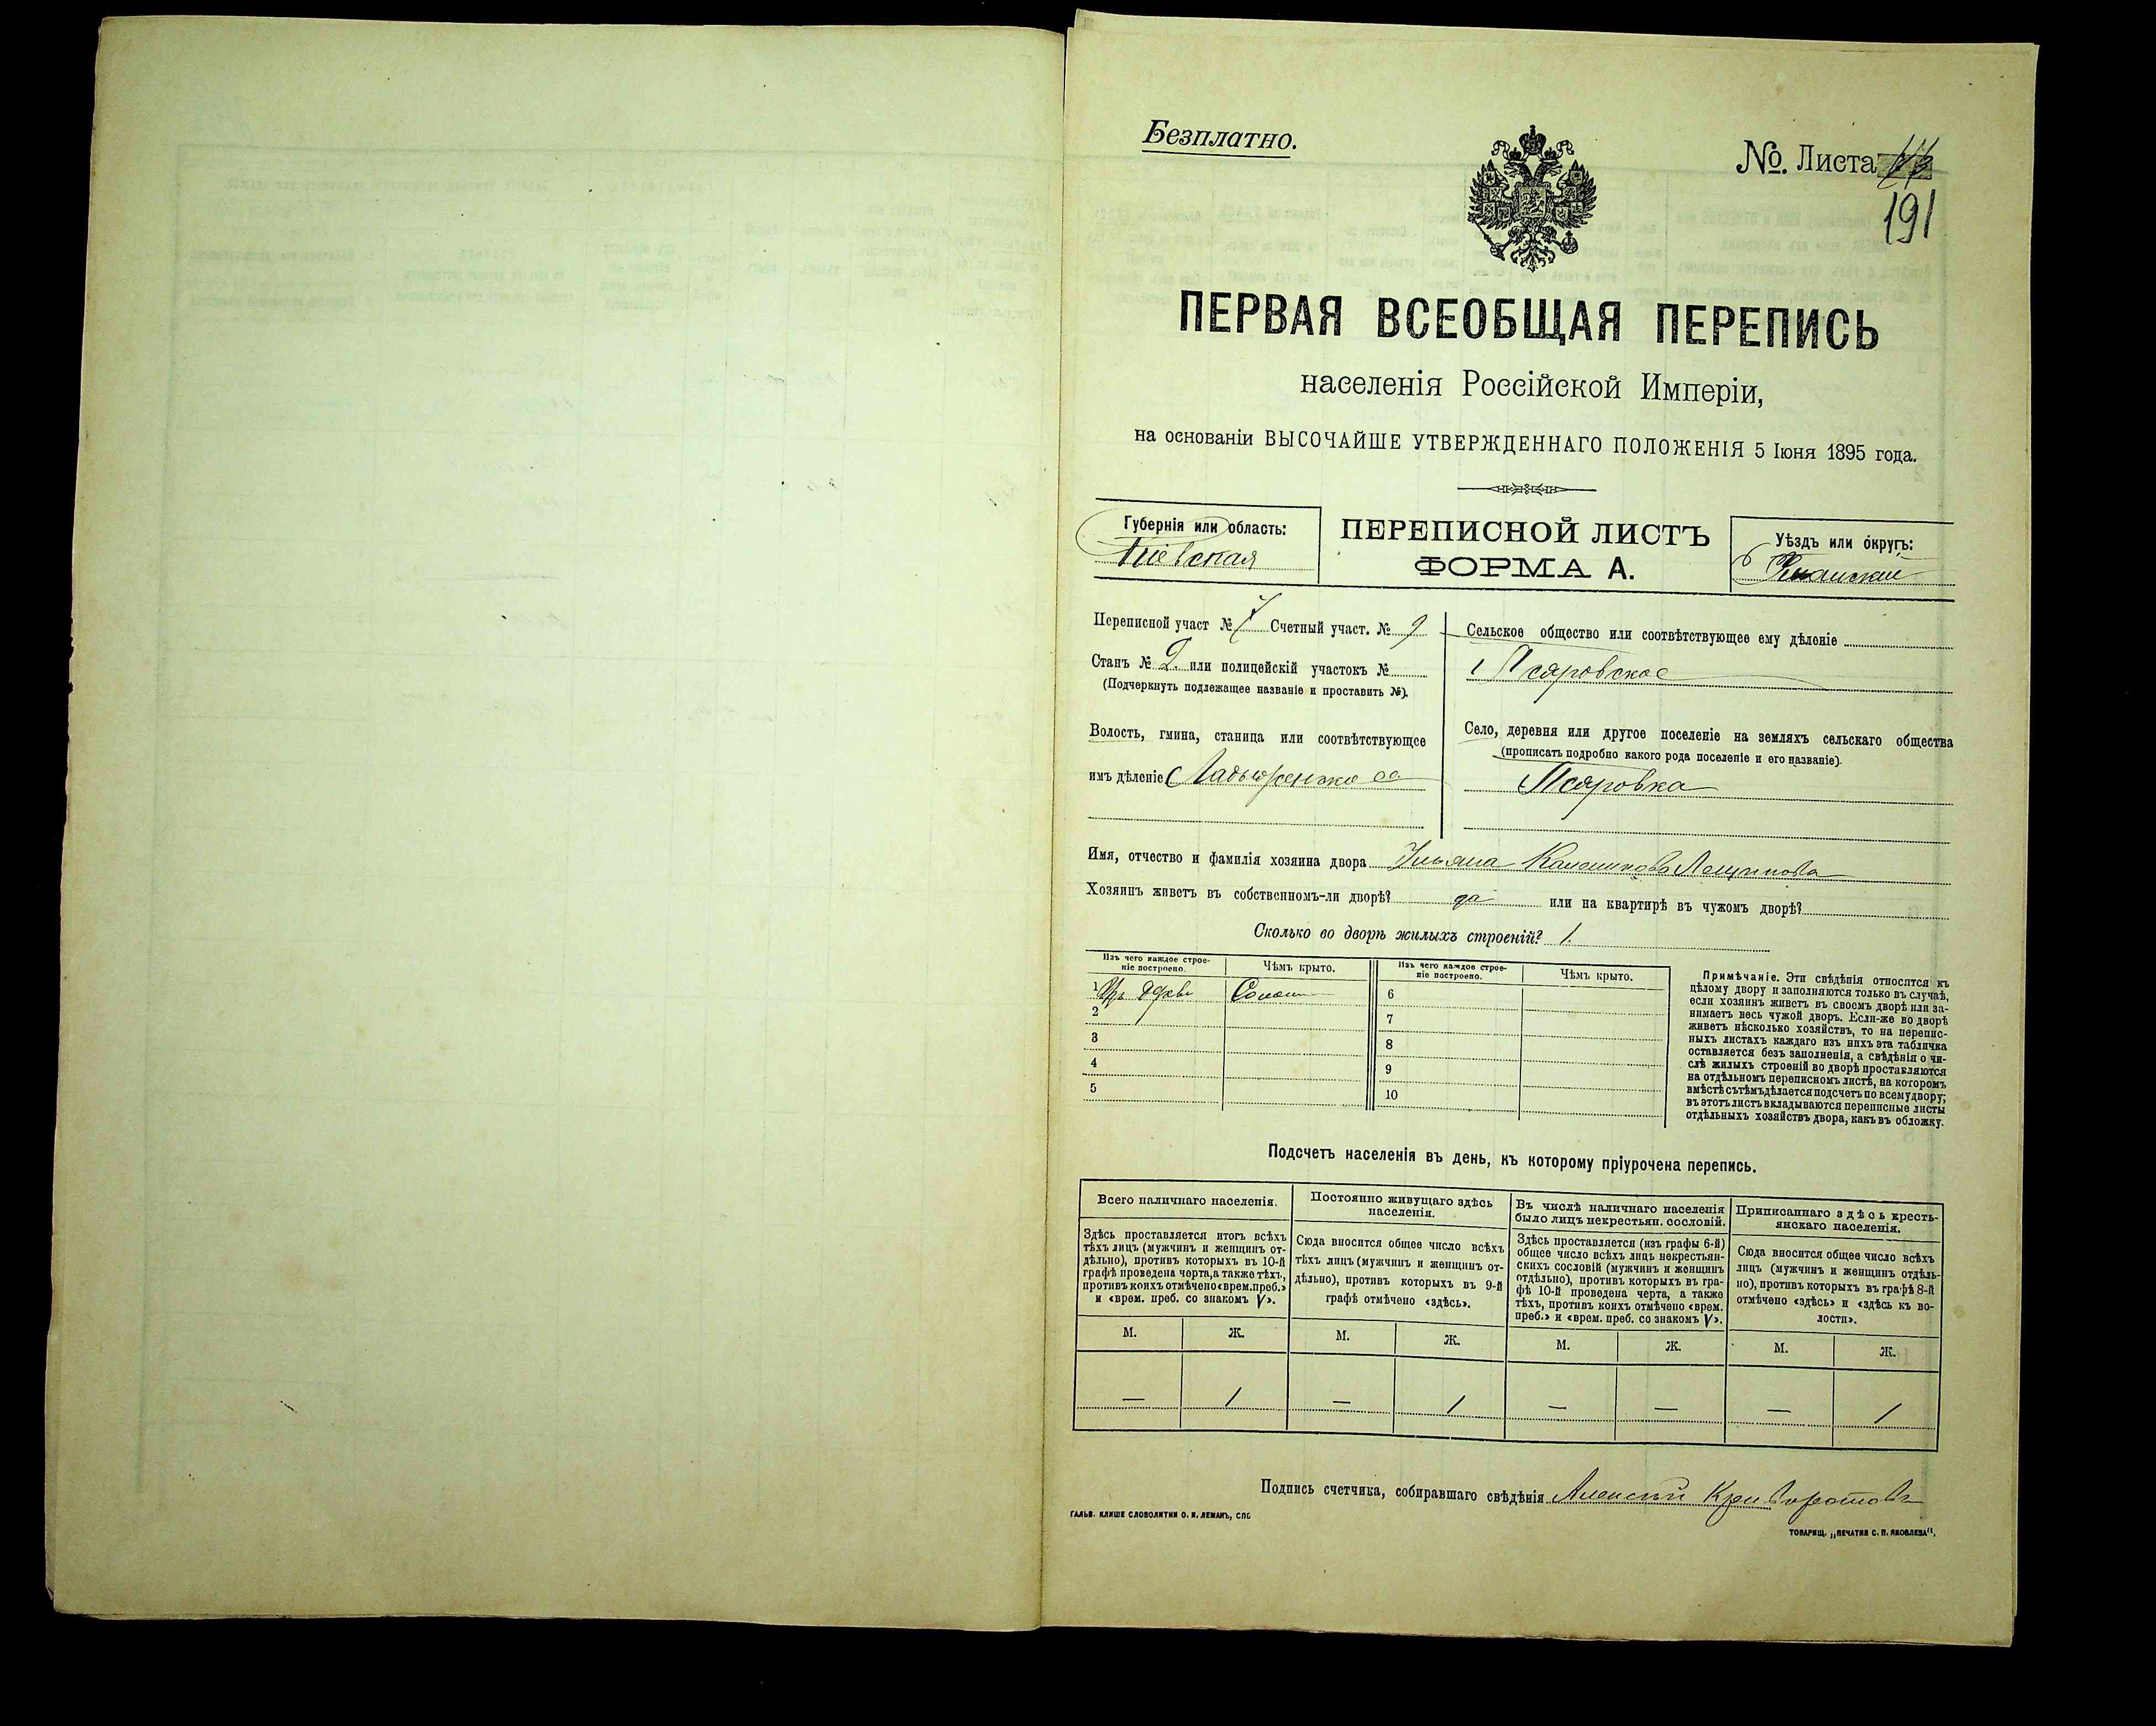 Безплатно.
№. Листа
191
ПЕРВАЯ ВСЕОБЩАЯ ПЕРЕПИСЬ
населенія Россійской Имперіи,
на основаніи ВЫСОЧАЙШЕ УТВЕРЖДЕННАГО ПОЛОЖЕНІЯ 5 Іюня 1895 года.
Губернія или область:
Кіевская
ПЕРЕПИСНОЙ ЛИСТЪ
ФОРМА А.
Уѣздъ или округъ:
Уманскій
Переписной участ № 7 Счетный участ. № 9
Станъ № 2. или полицейскій участокъ №
(Подчеркнуть подлежащее названіе и проставить №).
Волость, гмина, станица или соотвѣтствующее
имъ дѣленіе Ладыженская
Сельское общество или соотвѣтствующее ему дѣленіе
Псяровское
Село, деревня или другое поселеніе на земляхъ сельскаго общества
(прописать подробно какого рода поселеніе и его названіе).
Псяровка
Имя, отчество и фамилія хозяина двора Ульяна
Хозяинъ живетъ въ собственномъ-ли дворѣ? да или на квартирѣ въ чужомъ дворѣ?
Сколько во дворѣ жилыхъ строеній? 1.
Изъ чего каждое строе-
ніе построено.
Чѣмъ крыто.
Изъ чего каждое строе-
ніе построено.
Чѣмъ крыто.
1 Солом
2
3
4
5
6
7
8
9
10
Примѣчаніе. Эти свѣдѣнія относятся къ
цѣлому двору и заполняются только въ случаѣ,
если хозяинъ живетъ въ своемъ дворѣ или за-
нимаетъ весь чужой дворъ. Если-же во дворѣ
живетъ нѣсколько хозяйствъ, то на перепис-
ныхъ листахъ каждаго изъ нихъ эта табличка
оставляется безъ заполненія, а свѣдѣнія о чи-
слѣ жилыхъ строеній во дворѣ проставляются
на отдѣльномъ переписномъ листѣ, на которомъ
вмѣстѣ съ тѣмъ дѣлается подсчетъ по всему двору;
въ этотъ листъ вкладываются переписные листы
отдѣльныхъ хозяйствъ двора, какъ въ обложку.
Подсчетъ населенія въ день, къ которому пріурочена перепись.
Всего наличнаго населенія.
Здѣсь проставляется итогъ всѣхъ
тѣхъ лицъ (мужчинъ и женщинъ от-
дѣльно), противъ которыхъ въ 10-й
графѣ проведена черта, а также тѣхъ,
противъ коихъ отмѣчено «врем. преб.»
и «врем. преб. со знакомъ V».
Постоянно живущаго здѣсь
населенія.
Сюда вносится общее число всѣхъ
тѣхъ лицъ (мужчинъ и женщинъ от-
дѣльно), противъ которыхъ въ 9-й
графѣ отмѣчено «здѣсь».
Въ числѣ наличнаго населенія
было лицъ некрестьян. сословій.
Здѣсь проставляется (изъ графы 6-й)
общее число всѣхъ лицъ некрестьян-
скихъ сословій (мужчинъ и женщинъ
отдѣльно), противъ которыхъ въ гра-
фѣ 10-й проведена черта, а также
тѣхъ, противъ коихъ отмѣчено «врем.
преб.» и «врем. преб. со знакомъ V».
Приписаннаго здѣсь кресть-
янскаго населенія.
Сюда вносится общее число всѣхъ
лицъ (мужчинъ и женщинъ отдѣль-
но), противъ которыхъ въ графѣ 8-й
отмѣчено «здѣсь» и «здѣсь къ во-
лости».
М. Ж. М. Ж. М. Ж. М. Ж.
— 1 — 1 — — — 1
Подпись счетчика, собиравшаго свѣдѣнія Алексѣй Криворотовъ
ГАЛЬВ. КЛИШЕ СЛОВОЛИТНИ О. И. ЛЕМАНЪ, СПБ
ТОВАРИЩ. „ПЕЧАТНЯ С. П. ЯКОВЛЕВА“.